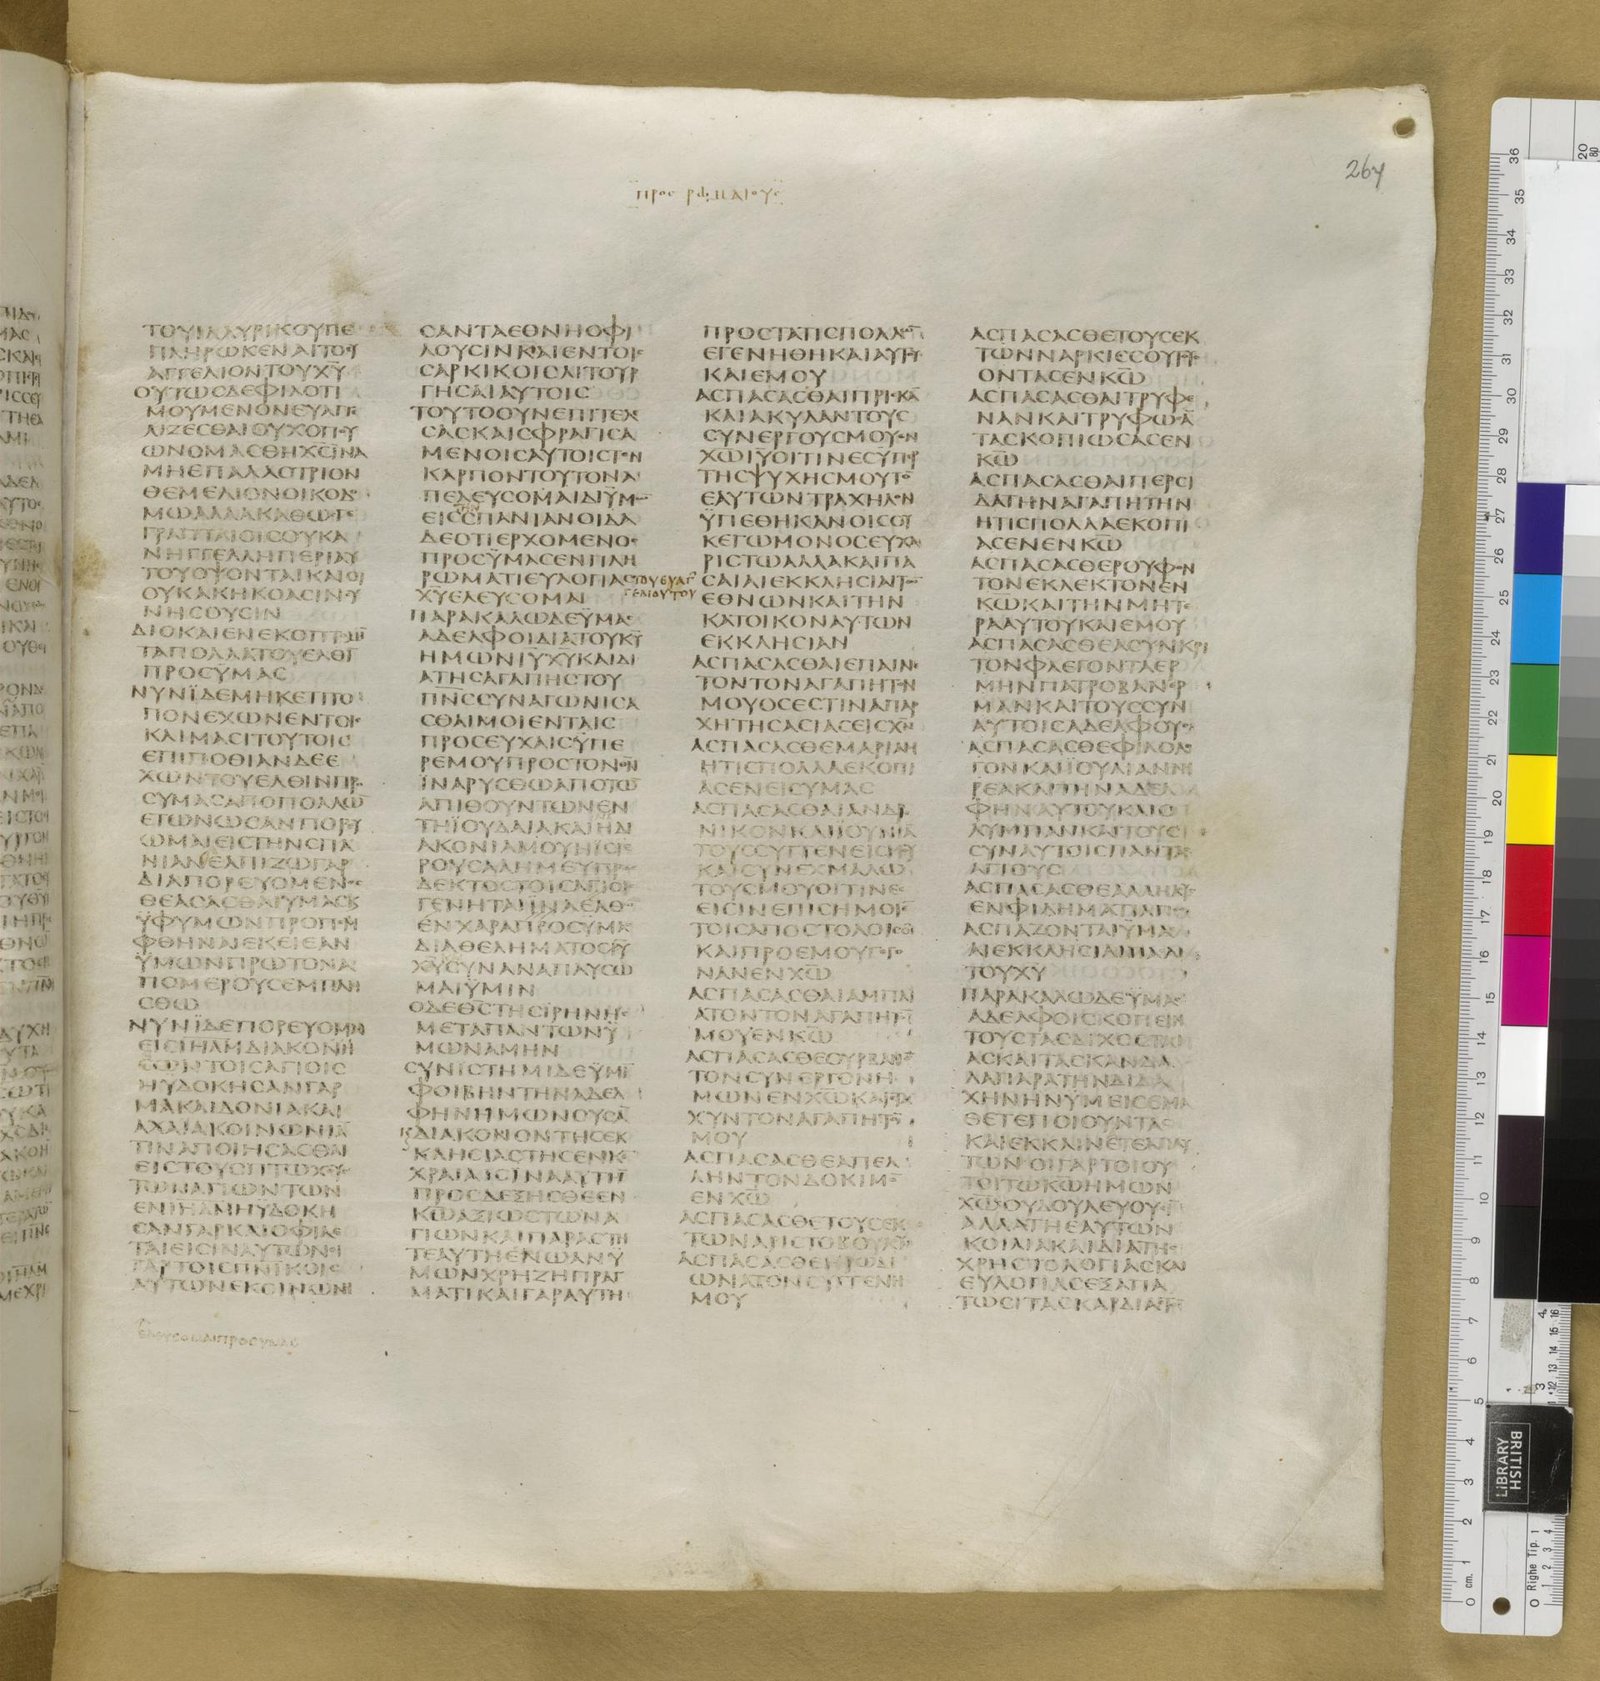 προς ρωμαιους
267
ΤΟΥΙΛΛΥΡΙΚΟΥΠΕ
ΠΛΗΡΩΚΕΝΑΙΤΟΕΥ
ΑΓΓΕΛΙΟΝΤΟΥΧΥ
ΟΥΤΩϹΔΕΦΙΛΟΤΙ
ΜΟΥΜΕΝΟΝΕΥΑΓΓΕ
ΛΙΖΕϹΘΑΙΟΥΧΟΠΟΥ
ΩΝΟΜΑϹΘΗΧϹΙΝΑ
ΜΗΕΠΑΛΛΟΤΡΙΟΝ
ΘΕΜΕΛΙΟΝΟΙΚΟΔΟ
ΜΩΑΛΛΑΚΑΘΩϹΓΕ
ΓΡΑΠΤΑΙΟΙϹΟΥΚΑ
ΝΗΓΓΕΛΛΗΠΕΡΙΑΥ
ΤΟΥΟΨΟΝΤΑΙΚΑΙΟΙ
ΟΥΚΑΚΗΚΟΑϹΙΝϹΥ
ΝΗϹΟΥϹΙΝ
ΔΙΟΚΑΙΕΝΕΚΟΠΤΟΜΗ
ΤΑΠΟΛΛΑΤΟΥΕΛΘΙ
ΠΡΟϹΥΜΑϹ
ΝΥΝΪΔΕΜΗΚΕΤΙΤΟ
ΠΟΝΕΧΩΝΕΝΤΟΙϹ
ΚΛΙΜΑϹΙΤΟΥΤΟΙϹ
ΕΠΙΠΟΘΙΑΝΔΕΕ
ΧΩΝΤΟΥΕΛΘΙΝΠΡΟ
ϹΥΜΑϹΑΠΟΠΟΛΛΩ̅
ΕΤΩΝΩϹΑΝΠΟΡΕΥ
ΩΜΑΙΕΙϹΤΗΝϹΠΑ
ΝΙΑΝΕΛΠΙΖΩΓΑΡ
ΔΙΑΠΟΡΕΥΟΜΕΝΟϹ
ΘΕΑϹΑϹΘΑΙΥΜΑϹΚΑΙ
ΫΦΥΜΩΝΠΡΟΠΕΜ
ΦΘΗΝΑΙΕΚΕΙΕΑΝ
ΫΜΩΝΠΡΩΤΟΝΑ
ΠΟΜΕΡΟΥϹΕΜΠΛΗ
ϹΘΩ
ΝΥΝΪΔΕΠΟΡΕΥΟΜΑΙ
ΕΙϹΙΗΛΜΔΙΑΚΟΝΗ
ϹΩΝΤΟΙϹΑΓΙΟΙϹ
ΗΥΔΟΚΗϹΑΝΓΑΡ
ΜΑΚΑΙΔΟΝΙΑΚΑΙ
ΑΧΑΙΑΚΟΙΝΩΝΙΑ̅
ΤΙΝΑΠΟΙΗϹΑϹΘΑΙ
ΕΙϹΤΟΥϹΠΤΩΧΟΥϹ
ΤΩΝΑΓΙΩΝΤΩΝ
ΕΝΙΗΛΜΗΥΔΟΚΗ
ϹΑΝΓΑΡΚΑΙΟΦΙΛΕ
ΤΑΙΕΙϹΙΝΑΥΤΩΝΕΙ
ΓΑΡΤΟΙϹΠΝΙΚΟΙϹ
ΑΥΤΩΝΕΚΟΙΝΩΝΗ
ελευσομαιπροσυμας
ϹΑΝΤΑΕΘΝΗΟΦΙ
ΛΟΥϹΙΝΚΑΙΕΝΤΟΙϹ
ϹΑΡΚΙΚΟΙϹΛΙΤΟΥΡ
ΓΗϹΑΙΑΥΤΟΙϹ
ΤΟΥΤΟΟΥΝΕΠΙΤΕΛΕ
ϹΑϹΚΑΙϹΦΡΑΓΙϹΑ
ΜΕΝΟϹΑΥΤΟΙϹΤΟΝ
ΚΑΡΠΟΝΤΟΥΤΟΝΑ
ΠΕΛΕΥϹΟΜΑΙΔΙΫΜΩ̅
ΕΙϹϹΠΑΝΙΑΝΟΙΔΑ
ΔΕΟΤΙΕΡΧΟΜΕΝΟϹ
ΠΡΟϹΫΜΑϹΕΝΠΛΗ
ΡΩΜΑΤΙΕΥΛΟΓΙΑϹ τουευαγ
ΧΥΕΛΕΥϹΟΜΑΙ γελιουτου
ΠΑΡΑΚΑΛΩΔΕΫΜΑϹ
ΑΔΕΛΦΟΙΔΙΑΤΟΥΚΥ
ΗΜΩΝΙΥΧΥΚΑΙΔΙ
ΑΤΗϹΑΓΑΠΗϹΤΟΥ
ΠΝϹϹΥΝΑΓΩΝΙϹΑ
ϹΘΑΙΜΟΙΕΝΤΑΙϹ
ΠΡΟϹΕΥΧΑΙϹΫΠΕ
ΡΕΜΟΥΠΡΟϹΤΟΝΘΝ
ΙΝΑΡΥϹΘΩΑΠΟΤΩ̅
ΑΠΙΘΟΥΝΤΩΝΕΝ
ΤΗΪΟΥΔΑΙΑΚΑΙΗΔΙ
ΑΚΟΝΙΑΜΟΥΗΕΙϹΙΕ
ΡΟΥϹΑΛΗΜΕΥΠΡΟϹ
ΔΕΚΤΟϹΤΟΙϹΑΓΙΟΙϹ
ΓΕΝΗΤΑΙΙΝΑΕΛΘΩ
ΕΝΧΑΡΑΠΡΟϹΥΜΑϹ
ΔΙΑΘΕΛΗΜΑΤΟϹΙΥ
ΧΥϹΥΝΑΝΑΠΑΥϹΩ
ΜΑΙΫΜΙΝ
ΟΔΕΘϹΤΗϹΙΡΗΝΗϹ
ΜΕΤΑΠΑΝΤΩΝΫ
ΜΩΝΑΜΗΝ
ϹΥΝΙϹΤΗΜΙΔΕΫΜΙ̅
ΦΟΙΒΗΝΤΗΝΑΔΕΛ
ΦΗΝΗΜΩΝΟΥϹΑ̅
ΔΙΑΚΟΝΟΝΤΗϹΕΚ
ΚΛΗϹΙΑϹΤΗϹΕΝΚΕ
ΧΡΑΙΑΙϹΙΝΑΑΥΤΗ̅
ΠΡΟϹΔΕΞΗϹΘΕΕΝ
ΚΩΑΞΙΩϹΤΩΝΑ
ΓΙΩΝΚΑΙΠΑΡΑϹΤΗ
ΤΕΑΥΤΗΕΝΩΑΝΫ
ΜΩΝΧΡΗΖΗΠΡΑΓ
ΜΑΤΙΚΑΙΓΑΡΑΥΤΗ
ΠΡΟϹΤΑΤΙϹΠΟΛΛΩ̅
ΕΓΕΝΗΘΗΚΑΙΑΥΤΟΥ
ΚΑΙΕΜΟΥ
ΑϹΠΑϹΑϹΘΑΙΠΡΙϹΚΑ̅
ΚΑΙΑΚΥΛΑΝΤΟΥϹ
ϹΥΝΕΡΓΟΥϹΜΟΥΕΝ
ΧΩΙΥΟΙΤΙΝΕϹΥΠΕΡ
ΤΗϹΨΥΧΗϹΜΟΥΤΟ̅
ΕΑΥΤΩΝΤΡΑΧΗΛΟΝ
ΫΠΕΘΗΚΑΝΟΙϹΟΥ
ΚΕΓΩΜΟΝΟϹΕΥΧΑ
ΡΙϹΤΩΑΛΛΑΚΑΙΠΑ
ϹΑΙΑΙΕΚΚΛΗϹΙΑΙΤΩ̅
ΕΘΝΩΝΚΑΙΤΗΝ
ΚΑΤΟΙΚΟΝΑΥΤΩΝ
ΕΚΚΛΗϹΙΑΝ
ΑϹΠΑϹΑϹΘΑΙΕΠΑΙΝΕ
ΤΟΝΤΟΝΑΓΑΠΗΤΟΝ
ΜΟΥΟϹΕϹΤΙΝΑΠΑΡ
ΧΗΤΗϹΑϹΙΑϹΕΙϹΧΝ
ΑϹΠΑϹΑϹΘΕΜΑΡΙΑΜ
ΗΤΙϹΠΟΛΛΑΕΚΟΠΙ
ΑϹΕΝΕΙϹΥΜΑϹ
ΑϹΠΑϹΑϹΘΑΙΑΝΔΡΟ
ΝΙΚΟΝΚΑΙΪΟΥΝΙΑ̅
ΤΟΥϹϹΥΓΓΕΝΕΙϹΜΟΥ
ΚΑΙϹΥΝΕΧΜΑΛΩ
ΤΟΥϹΜΟΥΟΙΤΙΝΕϹ
ΕΙϹΙΝΕΠΙϹΗΜΟΙΕ̅
ΤΟΙϹΑΠΟϹΤΟΛΟΙϹΟΙ
ΚΑΙΠΡΟΕΜΟΥΓΕΓΟ
ΝΑΝΕΝΧΩ
ΑϹΠΑϹΑϹΘΑΙΑΜΠΛΙ
ΑΤΟΝΤΟΝΑΓΑΠΗΤΟ̅
ΜΟΥΕΝΚΩ
ΑϹΠΑϹΑϹΘΕΟΥΡΒΑΝΟ̅
ΤΟΝϹΥΝΕΡΓΟΝΗ
ΜΩΝΕΝΧΩΚΑΙϹΤΑ
ΧΥΝΤΟΝΑΓΑΠΗΤΟ̅
ΜΟΥ
ΑϹΠΑϹΑϹΘΕΑΠΕΛ
ΛΗΝΤΟΝΔΟΚΙΜΟ̅
ΕΝΧΩ
ΑϹΠΑϹΑϹΘΕΤΟΥϹΕΚ
ΤΩΝΑΡΙϹΤΟΒΟΥΛΟΥ
ΑϹΠΑϹΑϹΘΕΗΡΩΔΙ
ΩΝΑΤΟΝϹΥΓΓΕΝΗ
ΜΟΥ
ΑϹΠΑϹΑϹΘΕΤΟΥϹΕΚ
ΤΩΝΝΑΡΚΙϹϹΟΥΤΟΥϹ
ΟΝΤΑϹΕΝΚΩ
ΑϹΠΑϹΑϹΘΑΙΤΡΥΦΕ
ΝΑΝΚΑΙΤΡΥΦΩϹΑ̅
ΤΑϹΚΟΠΙΩϹΑϹΕΝ
ΚΩ
ΑϹΠΑϹΑϹΘΑΙΠΕΡϹΙ
ΔΑΤΗΝΑΓΑΠΗΤΗΝ
ΗΤΙϹΠΟΛΛΑΕΚΟΠΙ
ΑϹΕΝΕΝΚΩ
ΑϹΠΑϹΑϹΘΕΡΟΥΦΟΝ
ΤΟΝΕΚΛΕΚΤΟΝΕΝ
ΚΩΚΑΙΤΗΝΜΗΤΕ
ΡΑΑΥΤΟΥΚΑΙΕΜΟΥ
ΑϹΠΑϹΑϹΘΕΑϹΥΝΚΡΙ
ΤΟΝΦΛΕΓΟΝΤΑΕΡ
ΜΗΝΠΑΤΡΟΒΑΝΕΡ
ΜΑΝΚΑΙΤΟΥϹϹΥΝ
ΑΥΤΟΙϹΑΔΕΛΦΟΥϹ
ΑϹΠΑϹΑϹΘΕΦΙΛΟΛΟ
ΓΟΝΚΑΙΪΟΥΛΙΑΝΝΗ
ΡΕΑΚΑΙΤΗΝΑΔΕΛ
ΦΗΝΑΥΤΟΥΚΑΙΟ
ΛΥΜΠΙΑΝΚΑΙΤΟΥϹ
ϹΥΝΑΥΤΟΙϹΠΑΝΤΑϹ
ΑΓΙΟΥϹ
ΑϹΠΑϹΑϹΘΕΑΛΛΗΛΟΥϹ
ΕΝΦΙΛΗΜΑΤΙΑΓΙΩ
ΑϹΠΑΖΟΝΤΑΙΫΜΑϹ
ΑΙΕΚΚΛΗϹΙΑΙΠΑϹΑΙ
ΤΟΥΧΥ
ΠΑΡΑΚΑΛΩΔΕΫΜΑϹ
ΑΔΕΛΦΟΙϹΚΟΠΕΙΝ
ΤΟΥϹΤΑϹΔΙΧΟϹΤΑϹΙ
ΑϹΚΑΙΤΑϹΚΑΝΔΑ
ΛΑΠΑΡΑΤΗΝΔΙΔΑ
ΧΗΝΗΝΫΜΕΙϹΕΜΑ
ΘΕΤΕΠΟΙΟΥΝΤΑϹ
ΚΑΙΕΚΚΛΙΝΕΤΕΑΠΑΥ
ΤΩΝΟΙΓΑΡΤΟΙΟΥ
ΤΟΙΤΩΚΩΗΜΩΝ
ΧΩΟΥΔΟΥΛΕΥΟΥϹΙ̅
ΑΛΛΑΤΗΕΑΥΤΩΝ
ΚΟΙΛΙΑΚΑΙΔΙΑΤΗϹ
ΧΡΗϹΤΟΛΟΓΙΑϹΚΑΙ
ΕΥΛΟΓΙΑϹΕΞΑΠΑ
ΤΩϹΙΤΑϹΚΑΡΔΙΑϹ